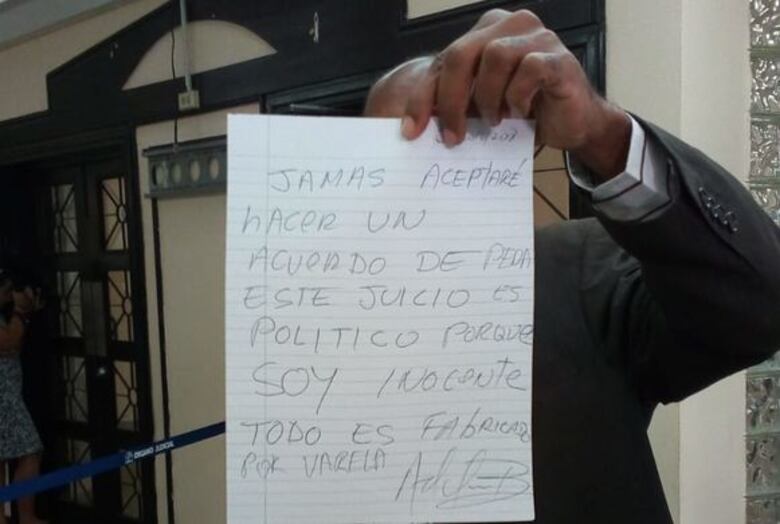 JAMAS ACEPTARÉ
HACER UN
ACUERDO DE PENA
ESTE JUICIO ES
POLITICO PORQUE
SOY INOCENTE
TODO ES FABRICADO
POR VARELA
ÓRGANO JUDICIAL